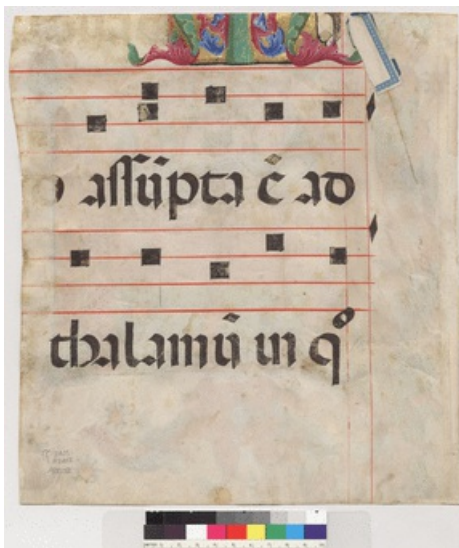 aſſũpta ẽ ad
thalamũ in qͦ